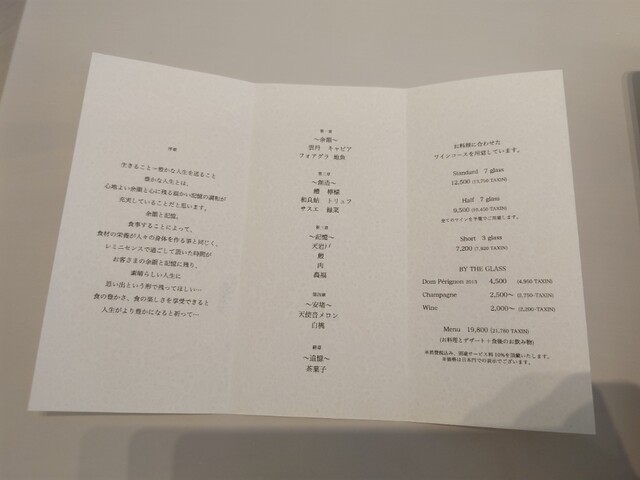 序章
生きること＝豊かな人生を送ること
豊かな人生とは、
心地よい余韻と心に残る温かい記憶の調和が
充実していることだと思います。
余韻と記憶。
食事することによって、
食材の栄養が人々の身体を作る事と同じく、
レミニセンスで過ごして頂いた時間が
お客さまの余韻と記憶に残り、
素晴らしい人生に
思い出という形で残ってほしい…
食の豊かさ、食の楽しさを享受できると
人生がより豊かになると祈って…
第一章
～余韻～
雲丹 キャビア
フォアグラ 地魚
第二章
～創造～
鱧 檸檬
和良鮎 トリュフ
サスエ 極菜
第三章
～記憶～
天岩戸
鰻
肉
轟揚
第四章
～安堵～
天使音メロン
白桃
終章
～追憶～
茶菓子
お料理に合わせた
ワインコースを用意しています。
Standard 7 glass
12,500 (13,750 TAXIN)
Half 7 glass
9,500 (10,450 TAXIN)
全てのワインを半量でご用意します。
Short 3 glass
7,200 (7,920 TAXIN)
BY THE GLASS
Dom Pérignon 2013 4,500 (4,950 TAXIN)
Champagne 2,500～ (2,750~TAXIN)
Wine 2,000～ (2,200~TAXIN)
Menu 19,800 (21,780 TAXIN)
(お料理とデザート＋食後のお飲み物)
※消費税込み、別途サービス料 10%を頂戴いたします。
お値段は日本円での表示でございます。